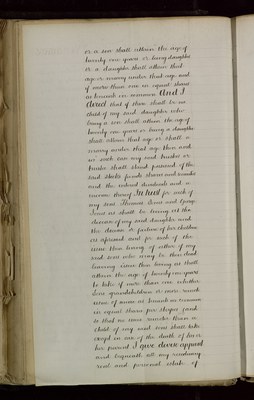 or a son shall attain the age of
twenty one years or being daughter
or a daughter shall attain that
age or marry under that age and
if more than one in equal shares
as tenants in common And I
direct that if there shall be no
child of my said daughter who
being a son shall attain the age of
twenty one years or being a daughter
shall attain that age or shall
marry under that age then and
in such case my said trustees or
trustee shall stand possessed of the
said stocks funds shares and securities
and the annual dividends and
income thereof In trust for such of
my sons Thomas and George
as shall be living at the
decease of my said daughter and
the decease or failure of her children
as aforesaid and for such of the
issue then living of either of my
said sons who may be then dead
leaving issue then living as shall
attain the age of twenty one years
to take if more than one whether
grandchildren or more remote
issue of mine as tenants in common
in equal shares per stirpes and
so that no issue remoter than a
child of my said sons shall take
except in case of the death of his or
her parent I give devise appoint
and bequeath all my residuary
real and personal estate of